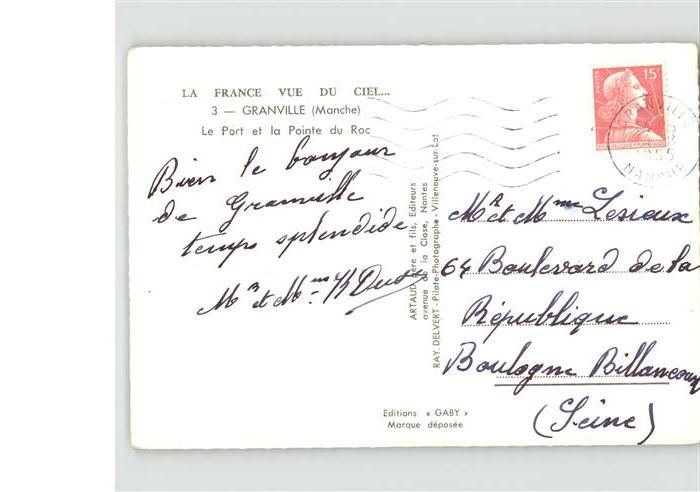 LA FRANCE VUE DU CIEL...
3 — GRANVILLE (Manche)
Le Port et la Pointe du Roc
Bien le bonjour
de Granville
temps splendide
Mr et Mme
ARTAUD Père et fils, Editeurs
avenue de la Close, Nantes
RAY. DELVERT - Pilote-Photographe - Villeneuve-sur-Lot
POSTES
15F
REPUBLIQUE FRANÇAISE
GRANVILLE
MANCHE
Mr et Mme Lesieux
64 Boulevard de la
République
Boulogne Billancourt
(Seine)
Editions « GABY »
Marque déposée